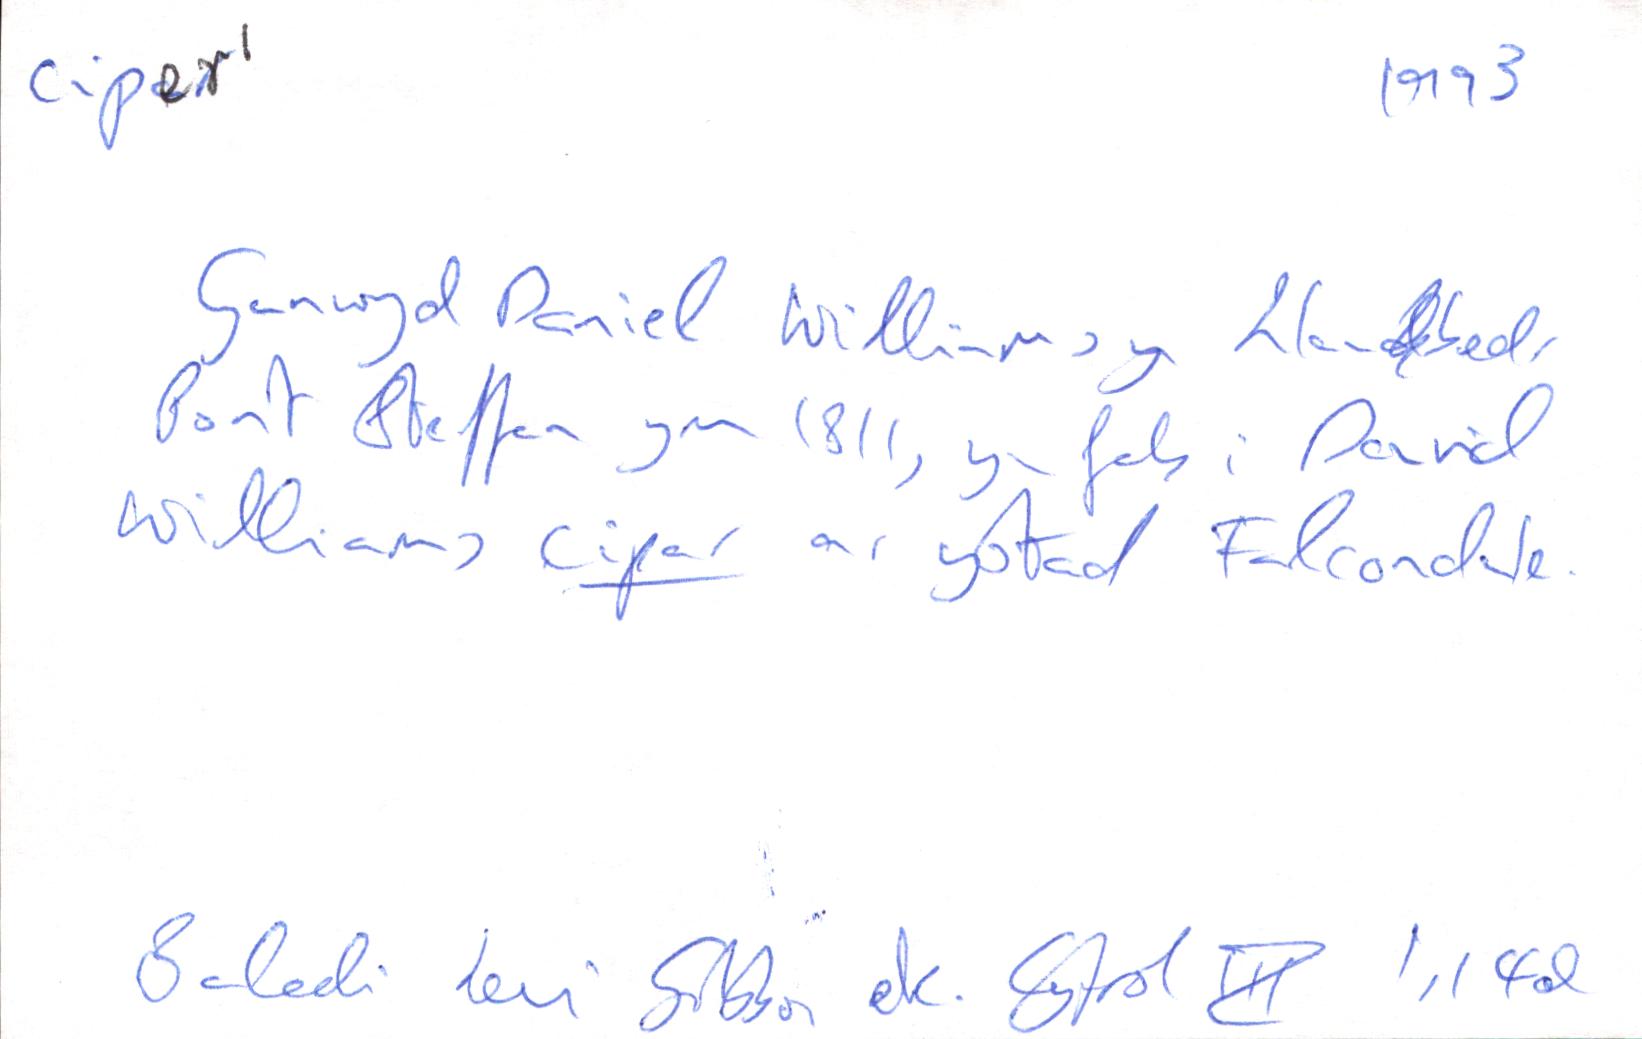 ciper¹ 1993
Ganwyd Daniel Williams yn Llanbedr
Pont Steffan ym 1811, yn fab i David
Williams cipar ar ystad Falcondale.
Baledi Levi Gibbon ek. Cyfrol III 1, 14